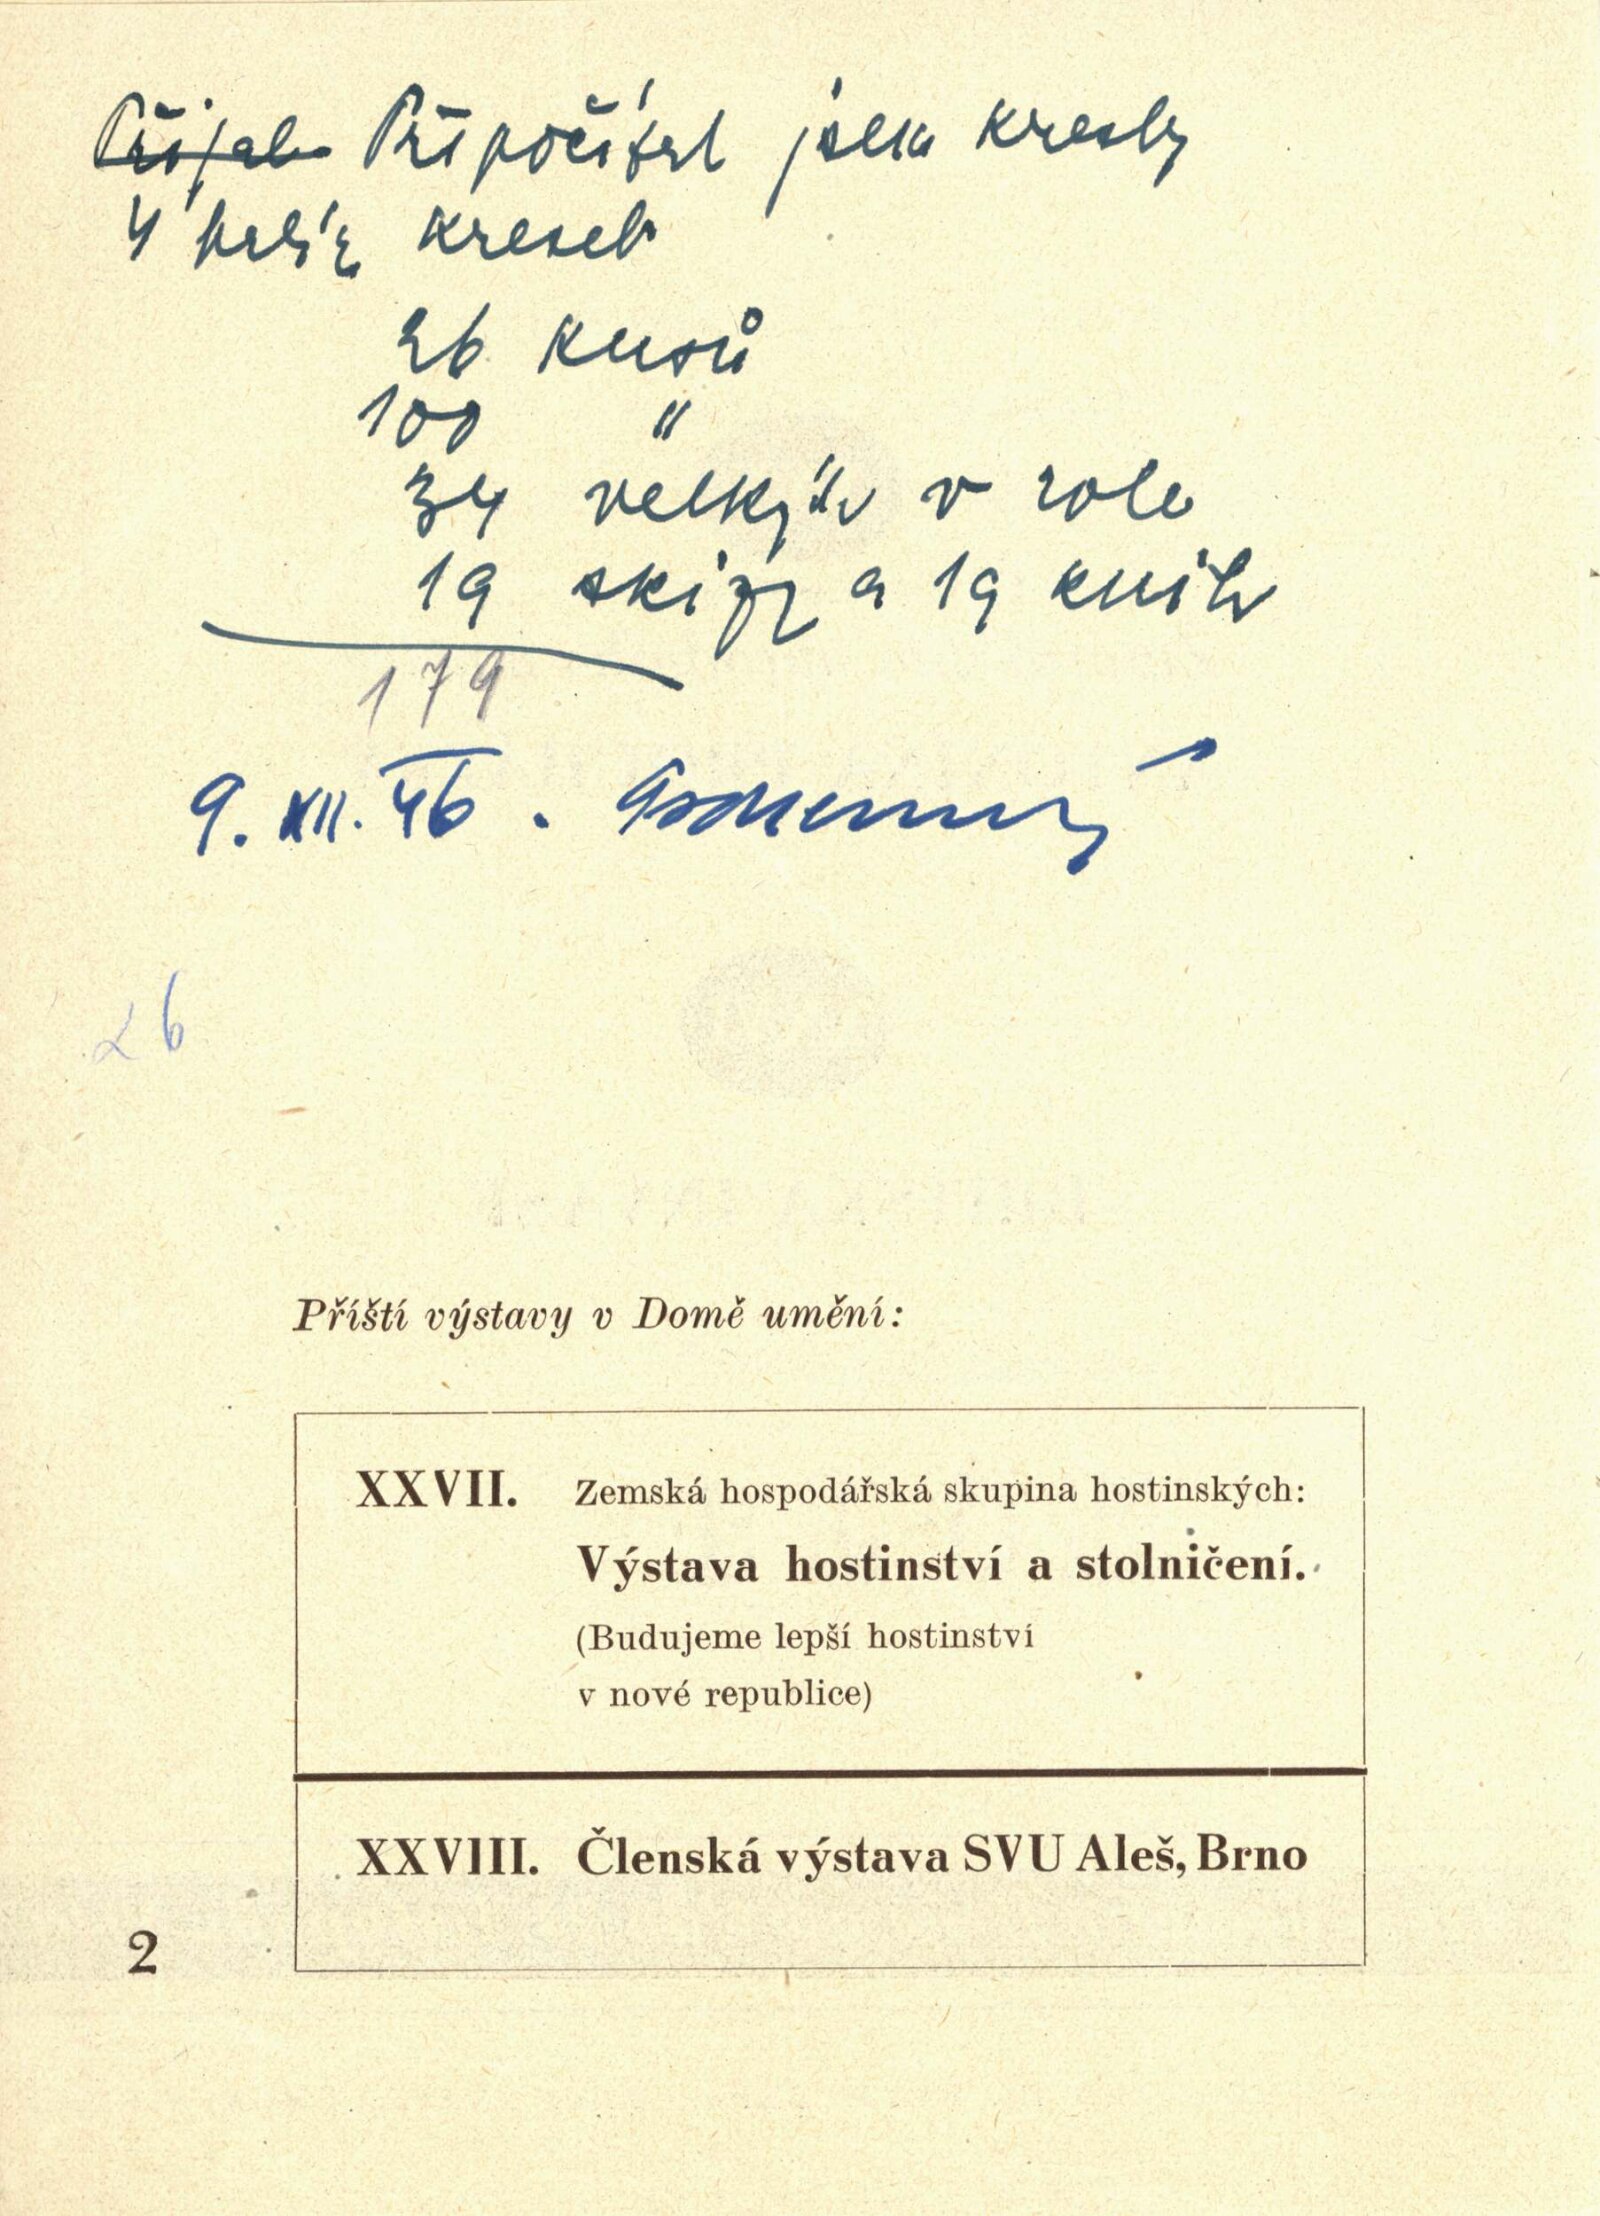 ~~Přijal~~ Připočítal jsem kresby
4 balíky kreseb
26 kusů
100 "
34 velkých v role
19 skizz a 19 knih
179
9. XII. 46.
26
Příští výstavy v Domě umění:
XXVII. Zemská hospodářská skupina hostinských:
Výstava hostinství a stolničení.
(Budujeme lepší hostinství
v nové republice)
XXVIII. Členská výstava SVU Aleš, Brno
2